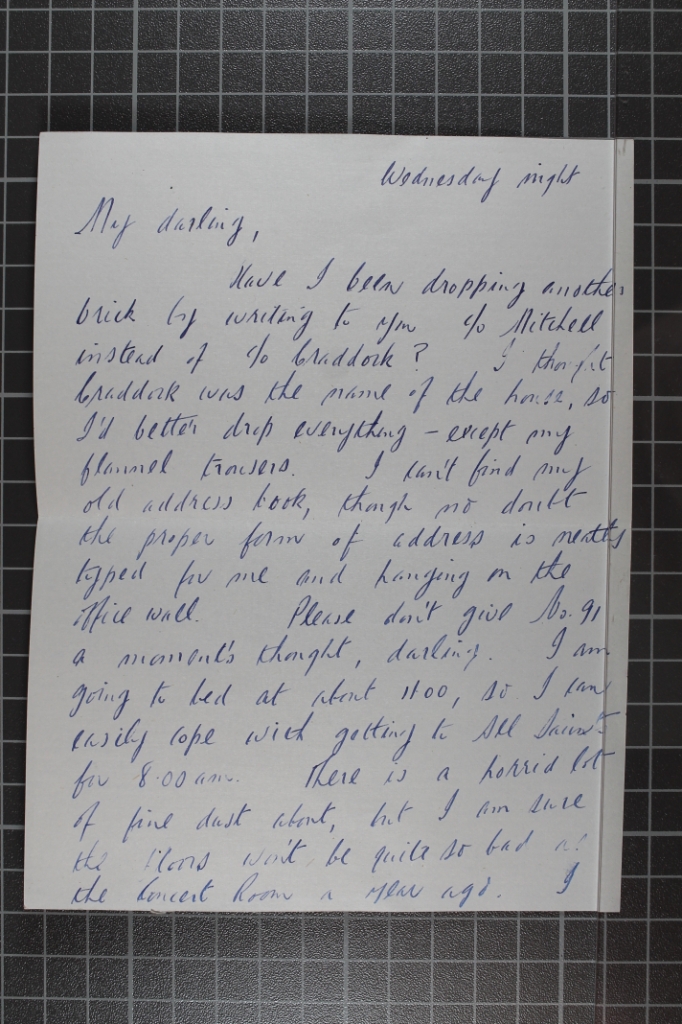 Wednesday night
My darling,
Have I been dropping another
brick by writing to you c/o Mitchell
instead of c/o Craddock? I thought
Craddock was the name of the house, so
I'd better drop everything – except my
flannel trousers. I can't find my
old address book, though no doubt
the proper form of address is neatly
typed for me and hanging on the
office wall. Please don't give No. 91
a moment's thought, darling. I am
going to bed at about 1100, so I can
easily cope with getting to All Saints
for 8.00 am. There is a horrid lot
of fine dust about, but I am sure
the floors won't be quite so bad as
the Concert Room a year ago. I